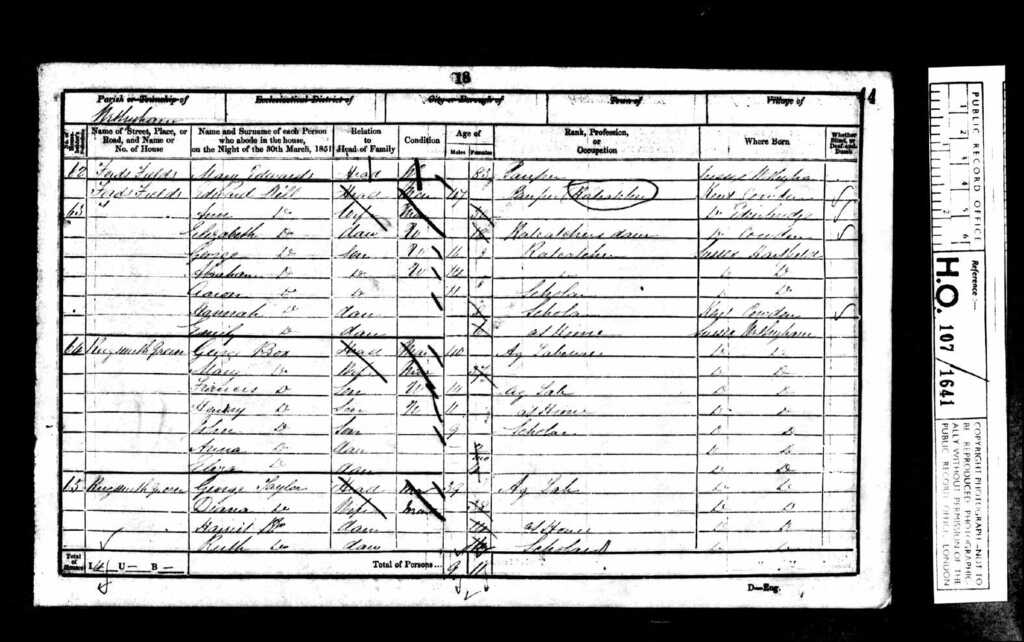 18
44
Parish or Township of
Ecclesiastical District of
City or Borough of
Town of
Village of
Withyham
Name of Street, Place, or Road, and Name or No. of House
Name and Surname of each Person who abode in the house, on the Night of the 30th March, 1851
Relation to Head of Family
Condition
Age of
Males
Females
Rank, Profession, or Occupation
Where Born
Whether Blind, or Deaf-and-Dumb
62 Fords Fields Mary Edwards Head 83 Pauper Sussex Withyham
Fords Fields Head Mar 47 Pauper Ratcatcher Kent Cowden
63 Do Wife Mar Do Edenbridge
Elizabeth Do dau U 18 Ratcatchers daur Do Cowden
George Do Son U 16 Ratcatcher Sussex Hartfield
Abraham Do Do U 14 Do Do
Aaron Do Do 11 Scholar Do Do
Hannah Do dau Scholar Kent Cowden
Emily Do dau at Home Sussex Withyham
64 George Box Head Mar 40 Ag Labourer Do Do
Mary Do Wife Mar 37 Do Do
Francis Do Son U 14 Ag Lab Do Do
Henry Do Son U 11 at Home Do Do
John Do Son 9 Scholar Do Do
Anna Do dau Do Do
Eliza Do dau Do Do
George Taylor Head Mar 39 Ag Lab Do Do
Diana Do Wife Mar Do Do
Harriet Do dau at Home Do Do
Ruth Do dau Scholar Do Do
Total of Houses
I 4 U— B—
Total of Persons... 9 11
D—Eng.
PUBLIC RECORD OFFICE
1 2 3 4 5 6
1 2
Reference:-
H.O. 107/1641
COPYRIGHT PHOTOGRAPH—NOT TO
BE REPRODUCED PHOTOGRAPHIC-
ALLY WITHOUT PERMISSION OF THE
PUBLIC RECORD OFFICE, LONDON